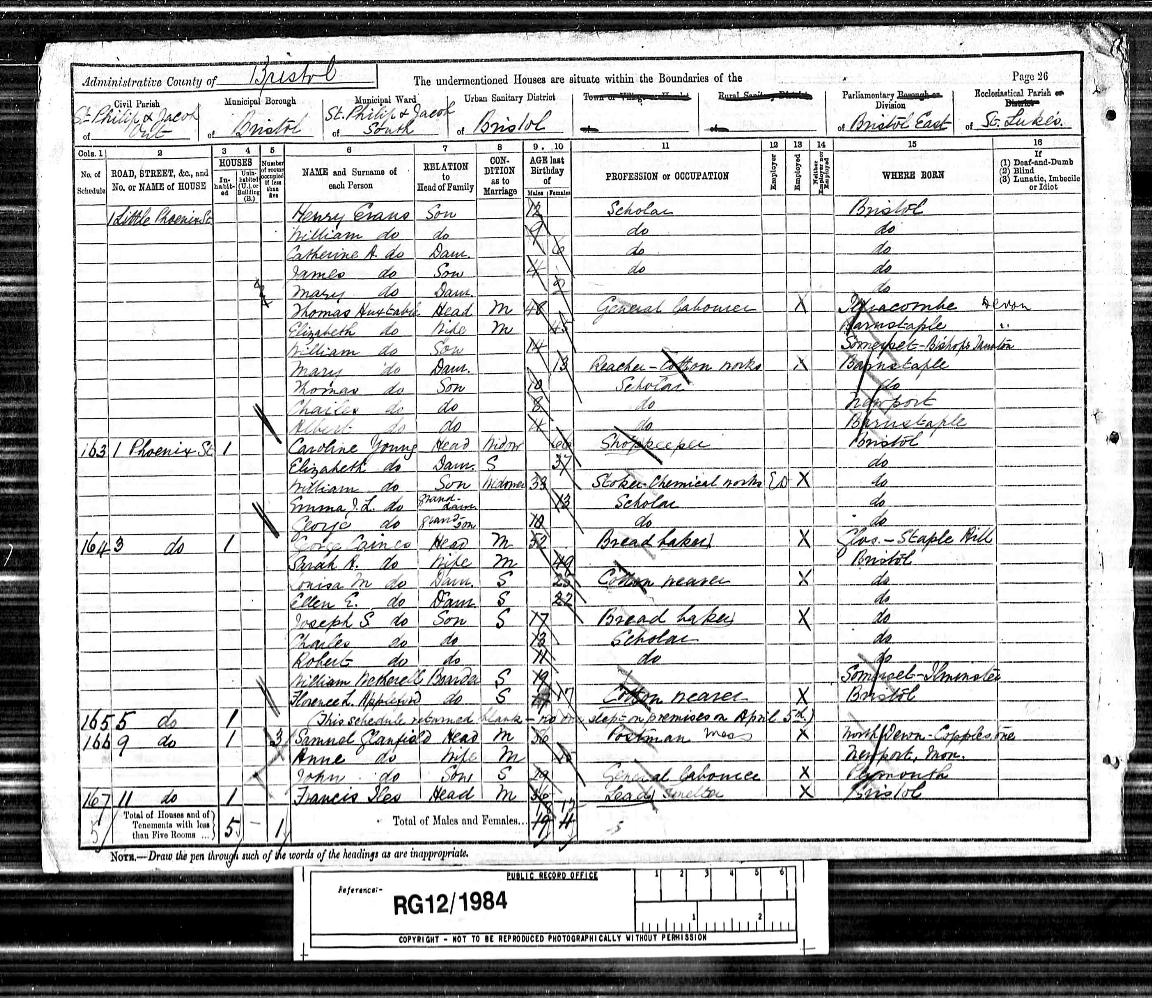 Administrative County of Bristol
The undermentioned Houses are situate within the Boundaries of the
Page 26
Civil Parish of St. Philip & Jacob Out
Municipal Borough of Bristol
Municipal Ward of St. Philip & Jacob South
Urban Sanitary District of Bristol
Town or Village or Hamlet of
Rural Sanitary District of
Parliamentary Borough or Division of Bristol East
Ecclesiastical Parish or District of St. Lukes.
Cols. 1 2 3 4 5 6 7 8 9. 10 11 12 13 14 15 16
No. of Schedule
ROAD, STREET, &c., and No. or NAME of HOUSE
HOUSES
Inhabited
Uninhabited (U.), or Building (B.)
Number of rooms occupied if less than five
NAME and Surname of each Person
RELATION to Head of Family
CONDITION as to Marriage
AGE last Birthday of
Males Females
PROFESSION or OCCUPATION
Employer
Employed
Neither Employer nor Employed
WHERE BORN
If (1) Deaf-and-Dumb (2) Blind (3) Lunatic, Imbecile or Idiot
1 Little Phoenix St Henry Evans Son 12 Scholar Bristol
William do do 9 do do
Catherine A. do Daur. 6 do do
James do Son 4 do do
Mary do Daur. do
Thomas Huxtable Head M 48 General labourer X Ilfracombe Devon
Elizabeth do Wife M 45 Barnstaple "
William do Son 14 Somerset - Bishops
Mary do Daur. 13 Reacher - Cotton works X Barnstaple
Thomas do Son 10 Scholar do
Charles do do 8 do Newport
Albert do do 4 do Barnstaple
163 1 Phoenix St 1 Caroline Young Head Widow 66 Shopkeeper Bristol
Elizabeth do Daur. S 37 do
William do Son Widower 33 Stoker Chemical works X do
Emma J. L. do grand-daur 13 Scholar do
George do grand-son 10 do do
164 3 do 1 George Caines Head M 52 Bread baker X Glos. - Staple Hill
Sarah A. do Wife M 49 Bristol
Louisa M do Daur. S 25 Cotton weaver X do
Ellen E. do Daur S 22 do
Joseph S do Son S 17 Bread baker X do
Charles do do 13 Scholar do
Robert do do 11 do do
William Wetherell Boarder S 19 Somerset - Ilminster
Florence L Appleford do S 17 Cotton weaver X Bristol
165 5 do 1 (This schedule returned blank - no one slept on premises on April 5th)
166 9 do 1 3 Samuel Glanfield Head M 56 Postman X North Devon - Copplestone
Anne do Wife M Newport, Mon.
John do Son S 19 General labourer X Plymouth
167 11 do 1 Francis Iles Head M 36 Lead Smelter X Bristol
5 Total of Houses and of Tenements with less than Five Rooms ... 5 - 1 Total of Males and Females...
NOTE.—Draw the pen through such of the words of the headings as are inappropriate.
PUBLIC RECORD OFFICE
Reference:-
RG12/1984
1 2 3 4 5 6
1 2
COPYRIGHT - NOT TO BE REPRODUCED PHOTOGRAPHICALLY WITHOUT PERMISSION